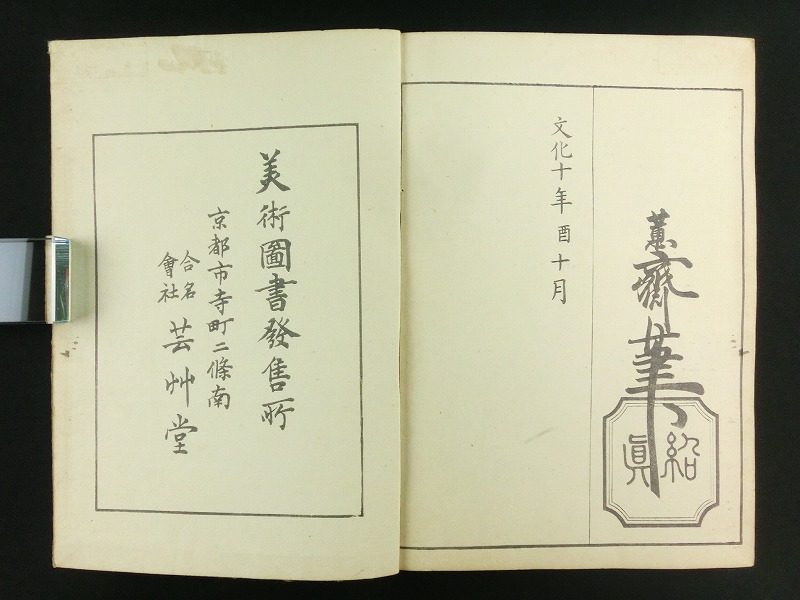 蕙齋筆
紹眞
文化十年酉十月
美術圖書發售所
京都市寺町二條南
合名會社 芸艸堂